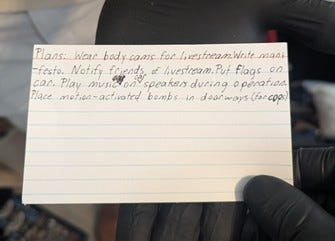 Plans: Wear body cams for livestream. Write mani-
-festo. Notify friends of livestream. Put flags on
car. Play music on speakers during operation.
Place motion-activated bombs in doorways (for cops)